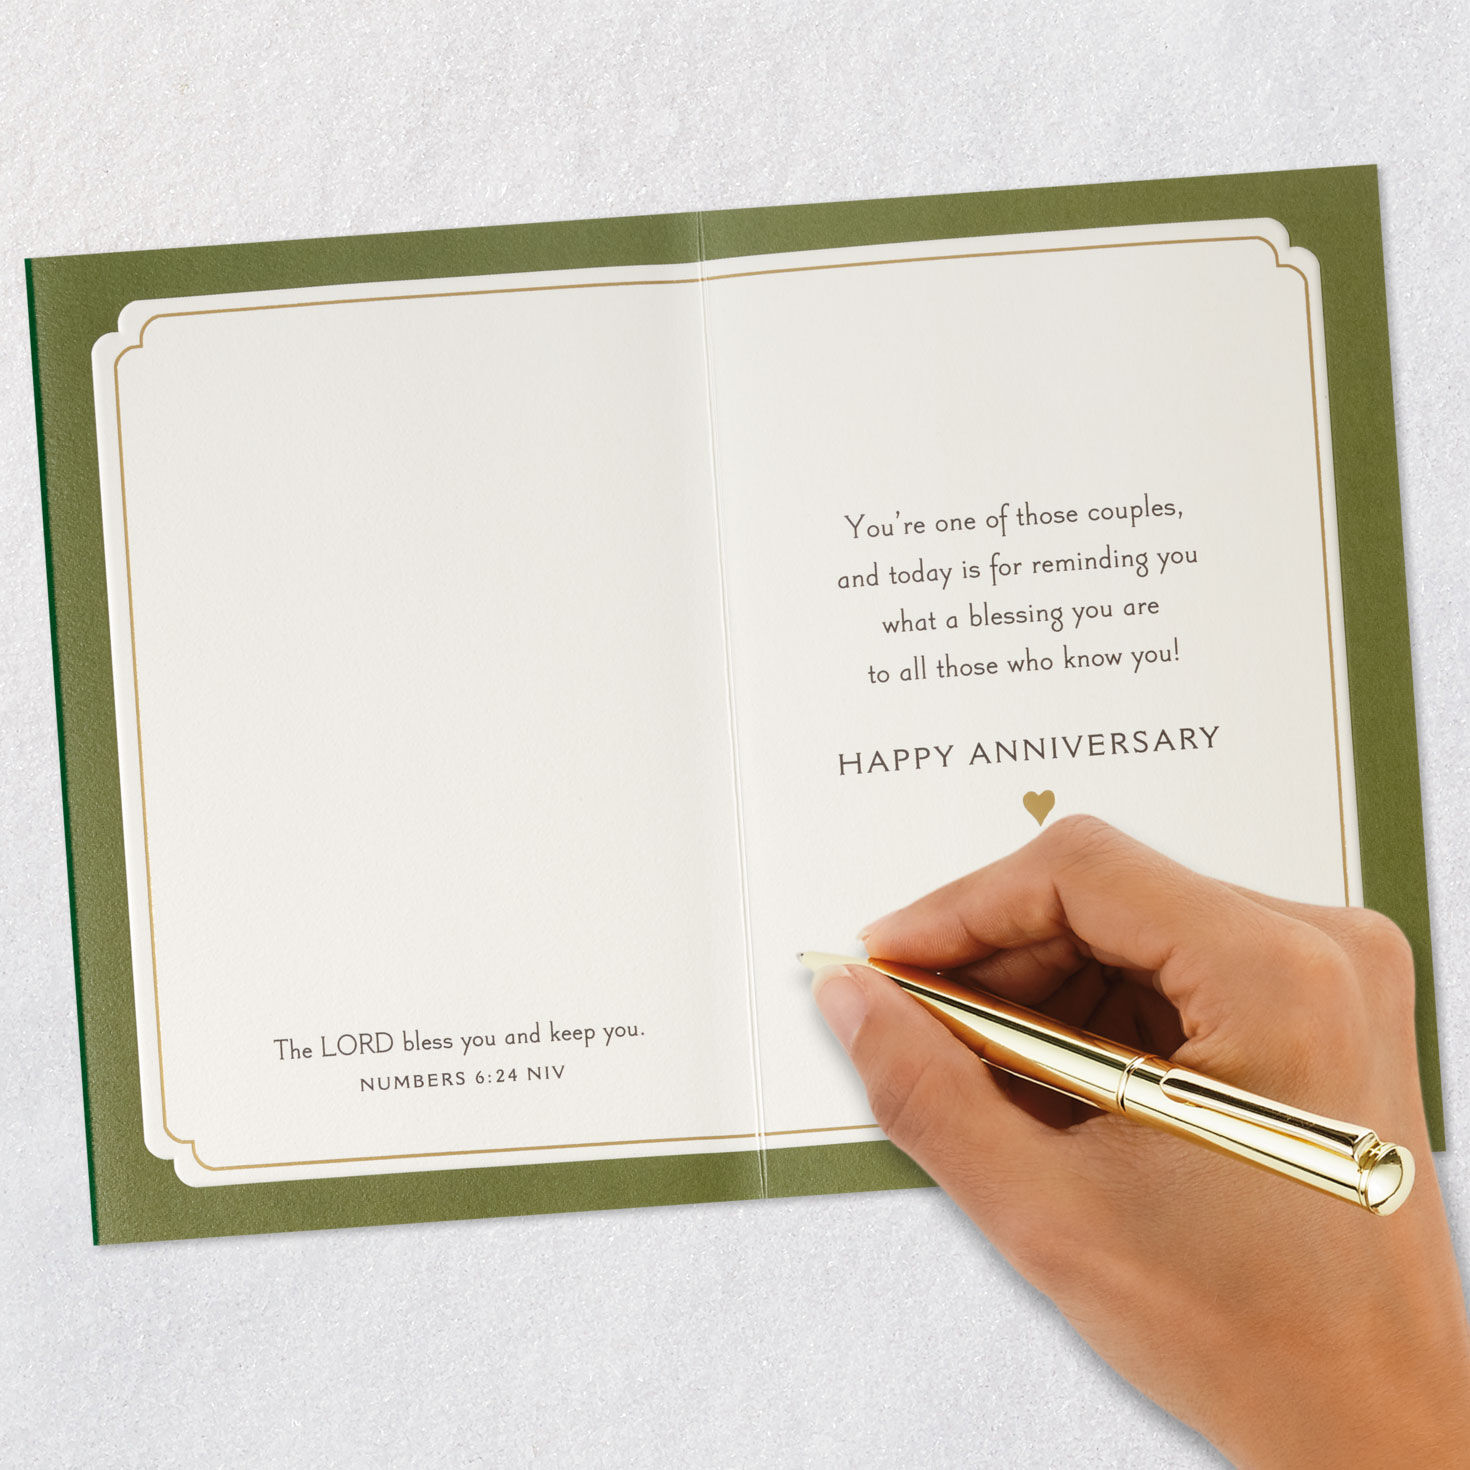 The LORD bless you and keep you.
NUMBERS 6:24 NIV
You're one of those couples,
and today is for reminding you
what a blessing you are
to all those who know you!
HAPPY ANNIVERSARY